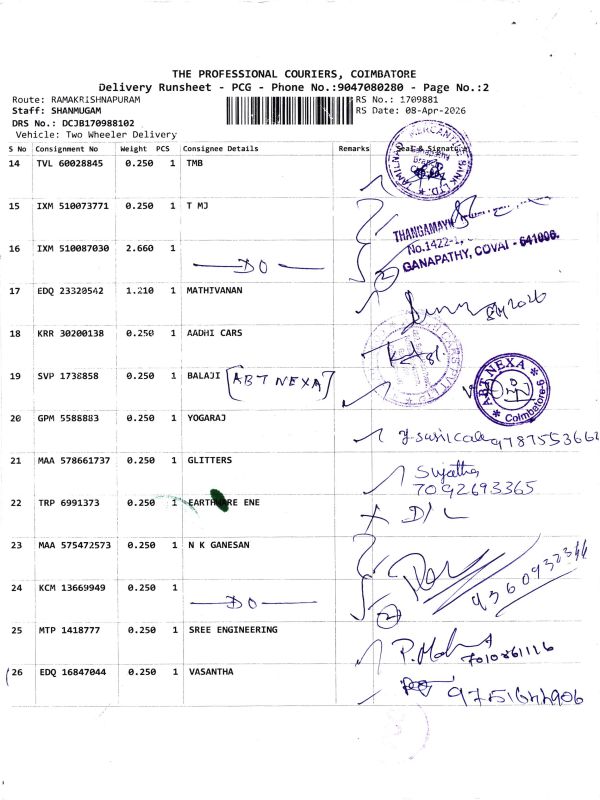 THE PROFESSIONAL COURIERS, COIMBATORE
Delivery Runsheet - PCG - Phone No.:9047080280 - Page No.:2
Route: RAMAKRISHNAPURAM
RS No.: 1709881
Staff: SHANMUGAM
RS Date: 08-Apr-2026
DRS No.: DCJB170988102
Vehicle: Two Wheeler Delivery
S No Consignment No Weight PCS Consignee Details Remarks Seal & Signature
14 TVL 60028845 0.250 1 TMB
TAMILNAD MERCANTILE BANK LTD.
15 IXM 510073771 0.250 1 T MJ
THANGAMAYIL
No.1422-1,
16 IXM 510087030 2.660 1
DO
2
GANAPATHY, COVAI - 641006.
17 EDQ 23320542 1.210 1 MATHIVANAN
18 KRR 30200138 0.250 1 AADHI CARS
19 SVP 1738858 0.250 1 BALAJI [ABT NEXA]
ABT NEXA
Coimbatore-6
20 GPM 5588883 0.250 1 YOGARAJ
21 MAA 578661737 0.250 1 GLITTERS
Sujatha
7092693365
22 TRP 6991373 0.250 1 EARTHWARE ENE
X D/L
23 MAA 575472573 0.250 1 N K GANESAN
24 KCM 13669949 0.250 1
DO
2
25 MTP 1418777 0.250 1 SREE ENGINEERING
26 EDQ 16847044 0.250 1 VASANTHA